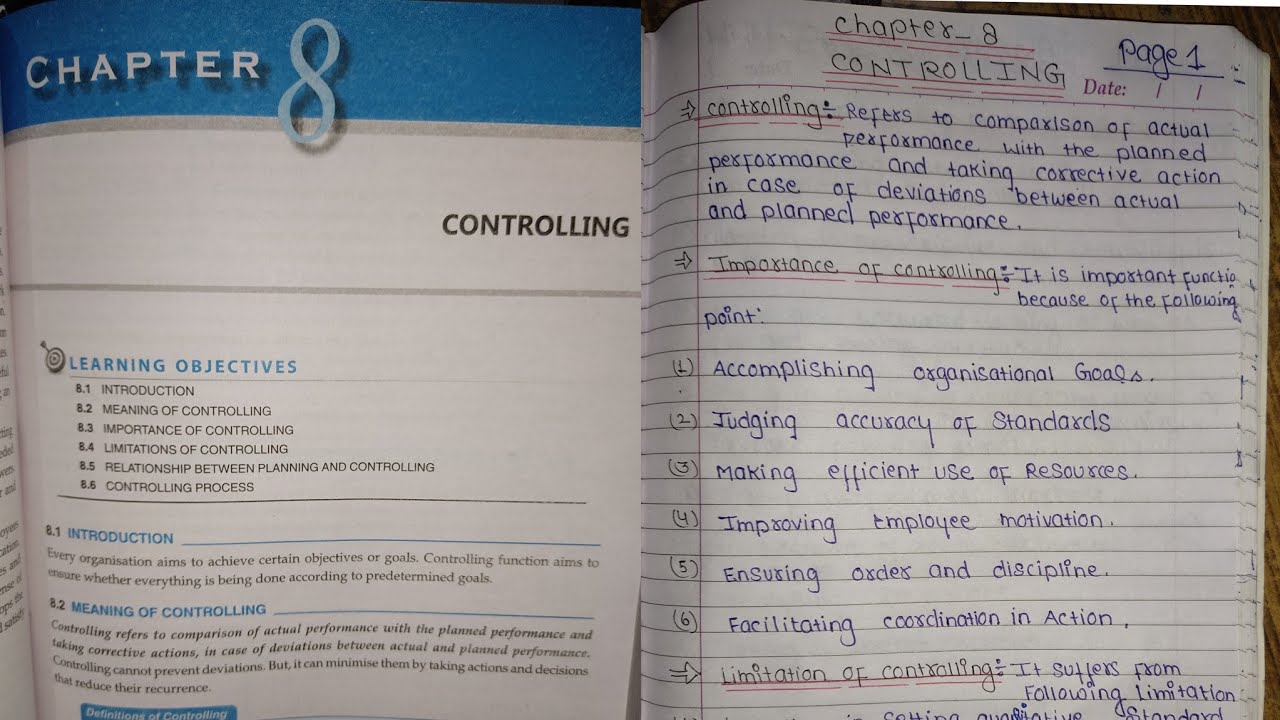 CHAPTER 8
CONTROLLING
LEARNING OBJECTIVES
8.1 INTRODUCTION
8.2 MEANING OF CONTROLLING
8.3 IMPORTANCE OF CONTROLLING
8.4 LIMITATIONS OF CONTROLLING
8.5 RELATIONSHIP BETWEEN PLANNING AND CONTROLLING
8.6 CONTROLLING PROCESS
8.1 INTRODUCTION
Every organisation aims to achieve certain objectives or goals. Controlling function aims to
ensure whether everything is being done according to predetermined goals.
8.2 MEANING OF CONTROLLING
Controlling refers to comparison of actual performance with the planned performance and
taking corrective actions, in case of deviations between actual and planned performance.
Controlling cannot prevent deviations. But, it can minimise them by taking actions and decisions
that reduce their recurrence.
Definitions of Controlling
Chapter-8
CONTROLLING
Page 1
Date: / /
⇒ controlling:- Refers to comparison of actual
performance with the planned
performance and taking corrective action
in case of deviations between actual
and planned performance.
⇒ Importance of controlling:- It is important functio
because of the following
point:
(1) Accomplishing organisational Goals.
(2) Judging accuracy of Standards
(3) Making efficient use of Resources.
(4) Improving Employee motivation.
(5) Ensuring order and discipline.
(6) Facilitating coordination in Action.
⇒ Limitation of controlling:- It suffers from
Following limitation
in setting qualitative Standard